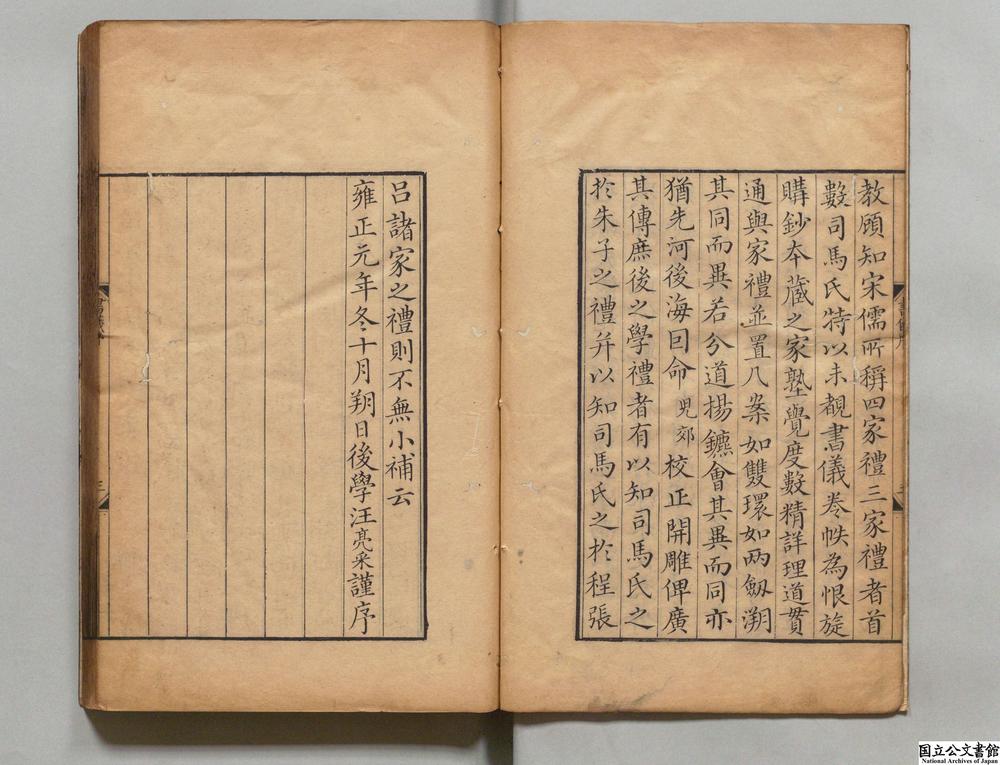 教頋知宋儒所稱四家禮三家禮者首
數司馬氏特以未覩書儀卷帙為恨旋
購鈔本藏之家塾覺度數精詳理道貫
通與家禮並置几案如雙環如兩劔溯
其同而異若分道揚鑣會其異而同亦
猶先河後海回命兒郊校正開雕俾廣
其傳庶後之學禮者有以知司馬氏之
扵朱子之禮并以知司馬氏之扵程張
吕諸家之禮則不無小補云
雍正元年冬十月朔日後學汪亮采謹序
国立公文書館
National Archives of Japan